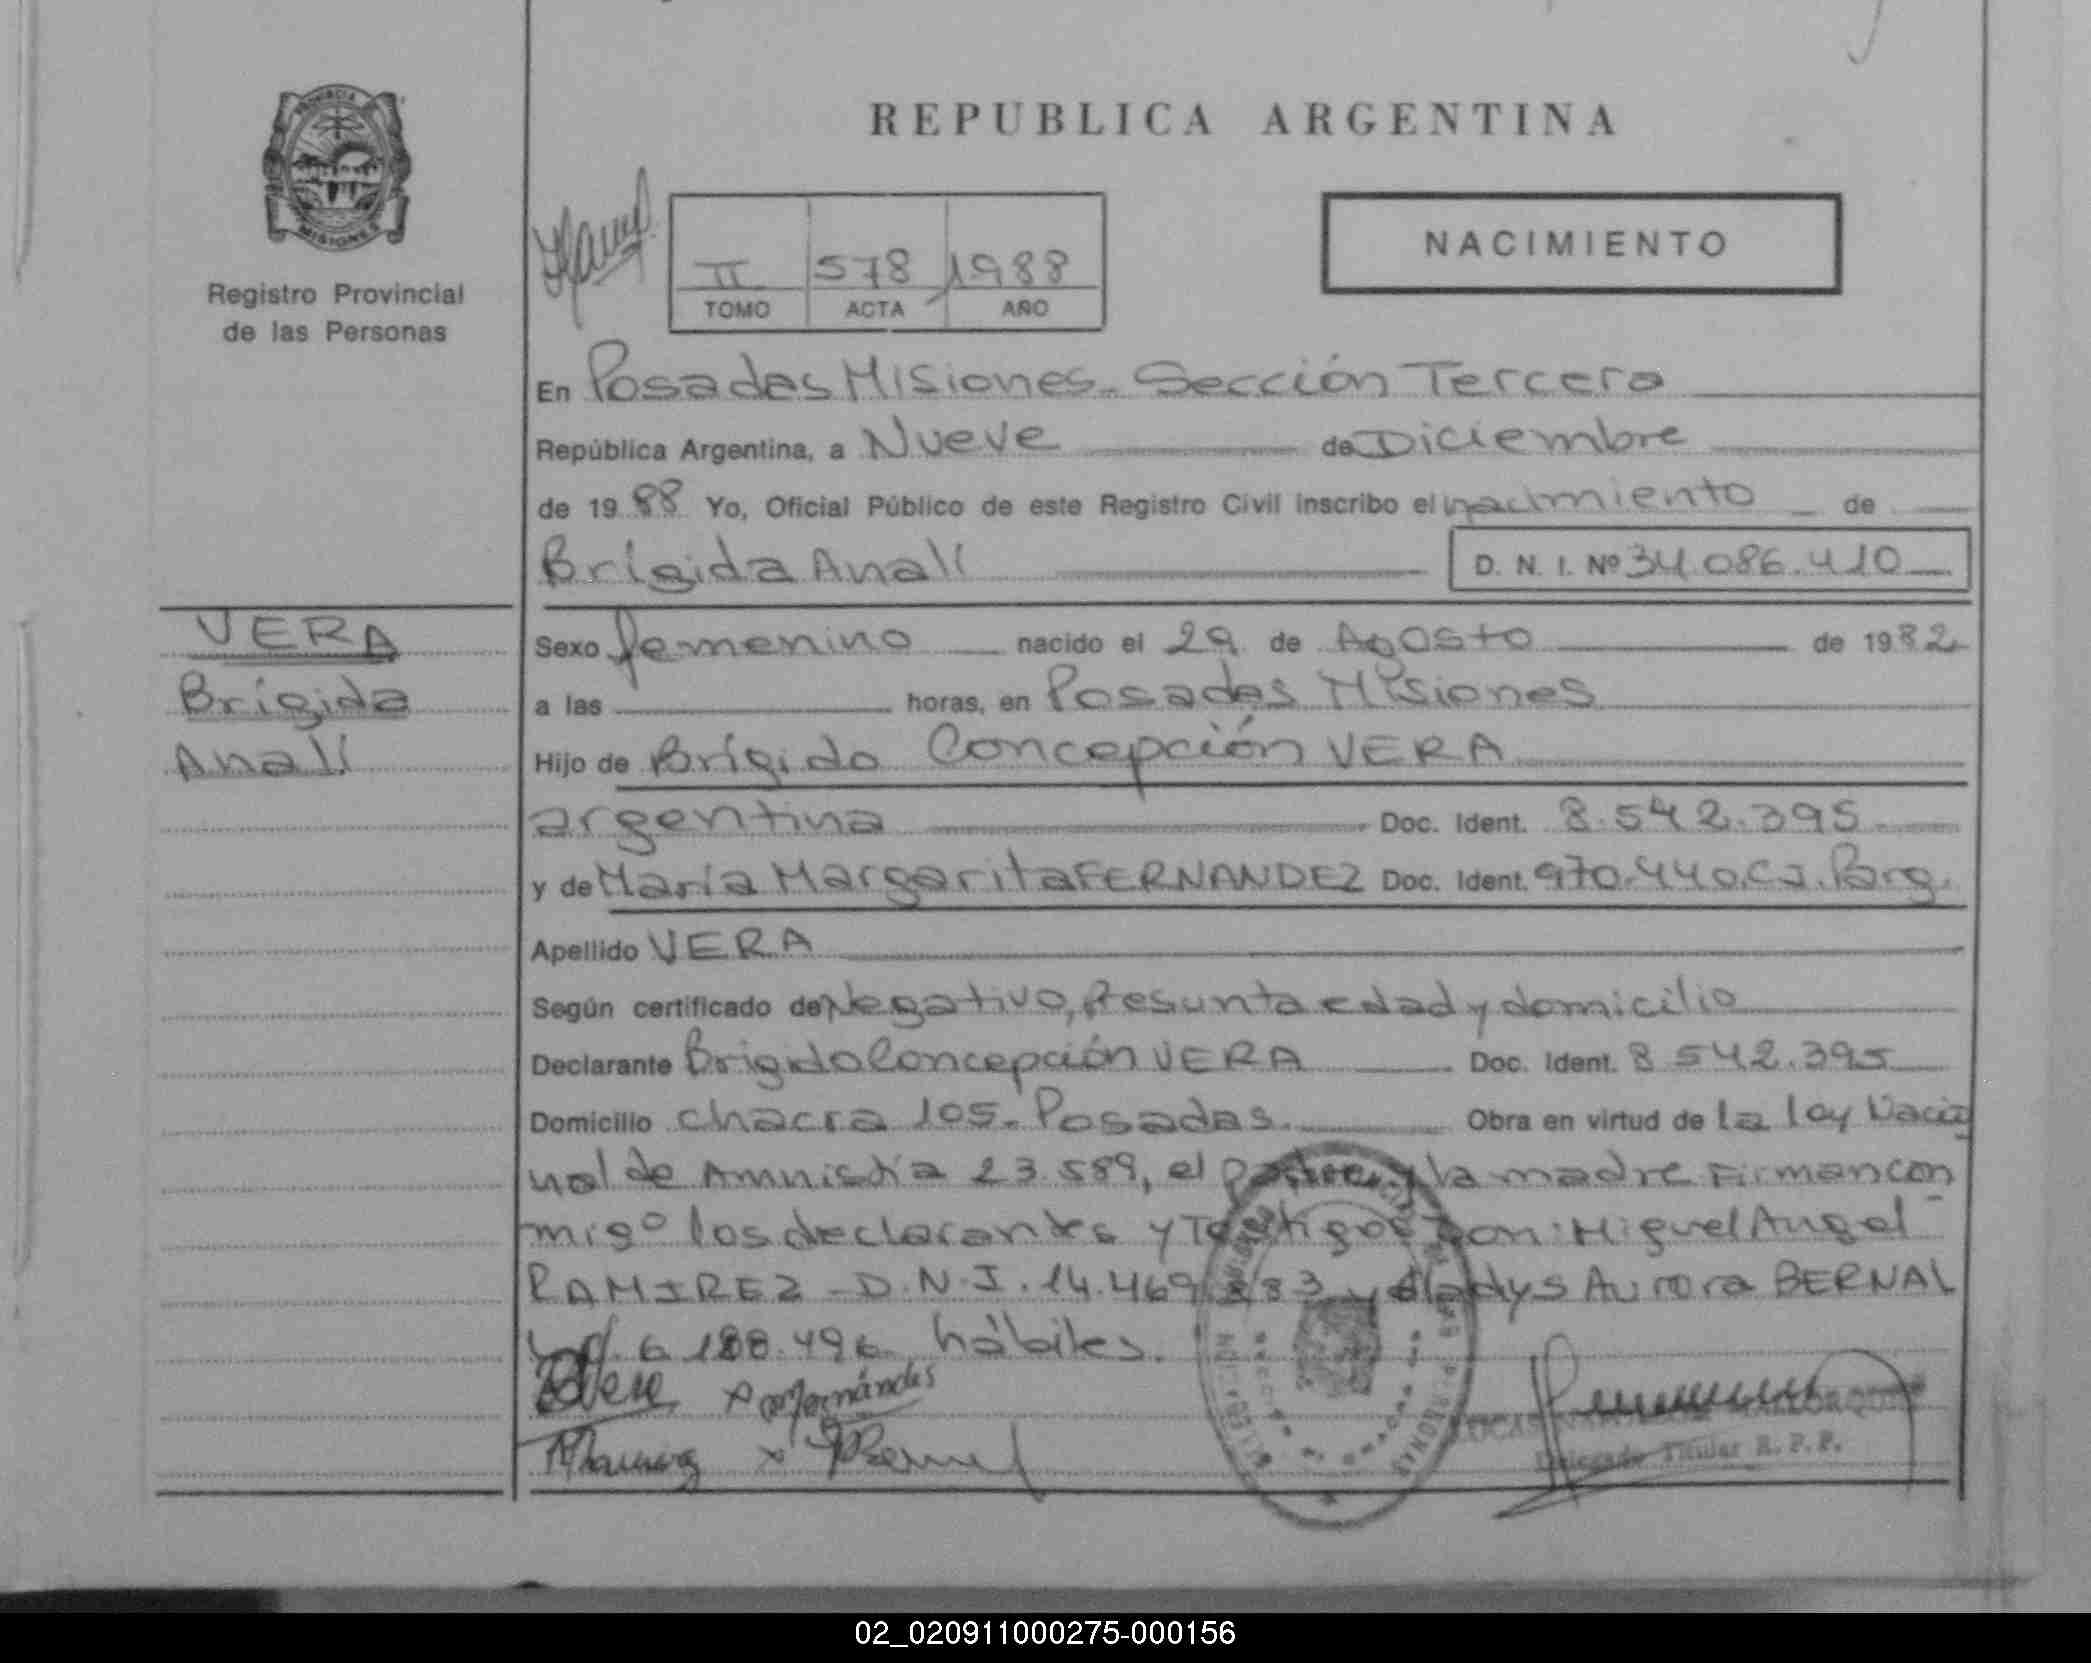 REPUBLICA ARGENTINA
PROVINCIA
MISIONES
Registro Provincial
de las Personas
II 578 1988
TOMO ACTA AÑO
NACIMIENTO
En Posadas Misiones. Sección Tercera
República Argentina, a Nueve de Diciembre
de 1988 Yo, Oficial Público de este Registro Civil inscribo el nacimiento de
Brígida Analí D. N. I. Nº 34.086.410
VERA
Brígida
Analí
Sexo femenino nacido el 29 de Agosto de 1982
a las horas, en Posadas Misiones
Hijo de Brígido Concepción VERA
argentina Doc. Ident. 8.542.395
y de María Margarita FERNANDEZ Doc. Ident. 970.440.C.I. Parg.
Apellido VERA
Según certificado de Negativo, Presunta edad y domicilio
Declarante Brigido Concepción VERA Doc. Ident. 8.542.395
Domicilio chacra 105. Posadas. Obra en virtud de la ley Nacio
nal de Amnistía 23.589, el padre y la madre Firman con
migo los declarantes y Testigos Don: Miguel Angel
RAMIREZ - D.N.I. 14.469. 83 y Gladys Aurora BERNAL
6.188.496 hábiles.
Delegado Titular R. P. P.
02_020911000275-000156